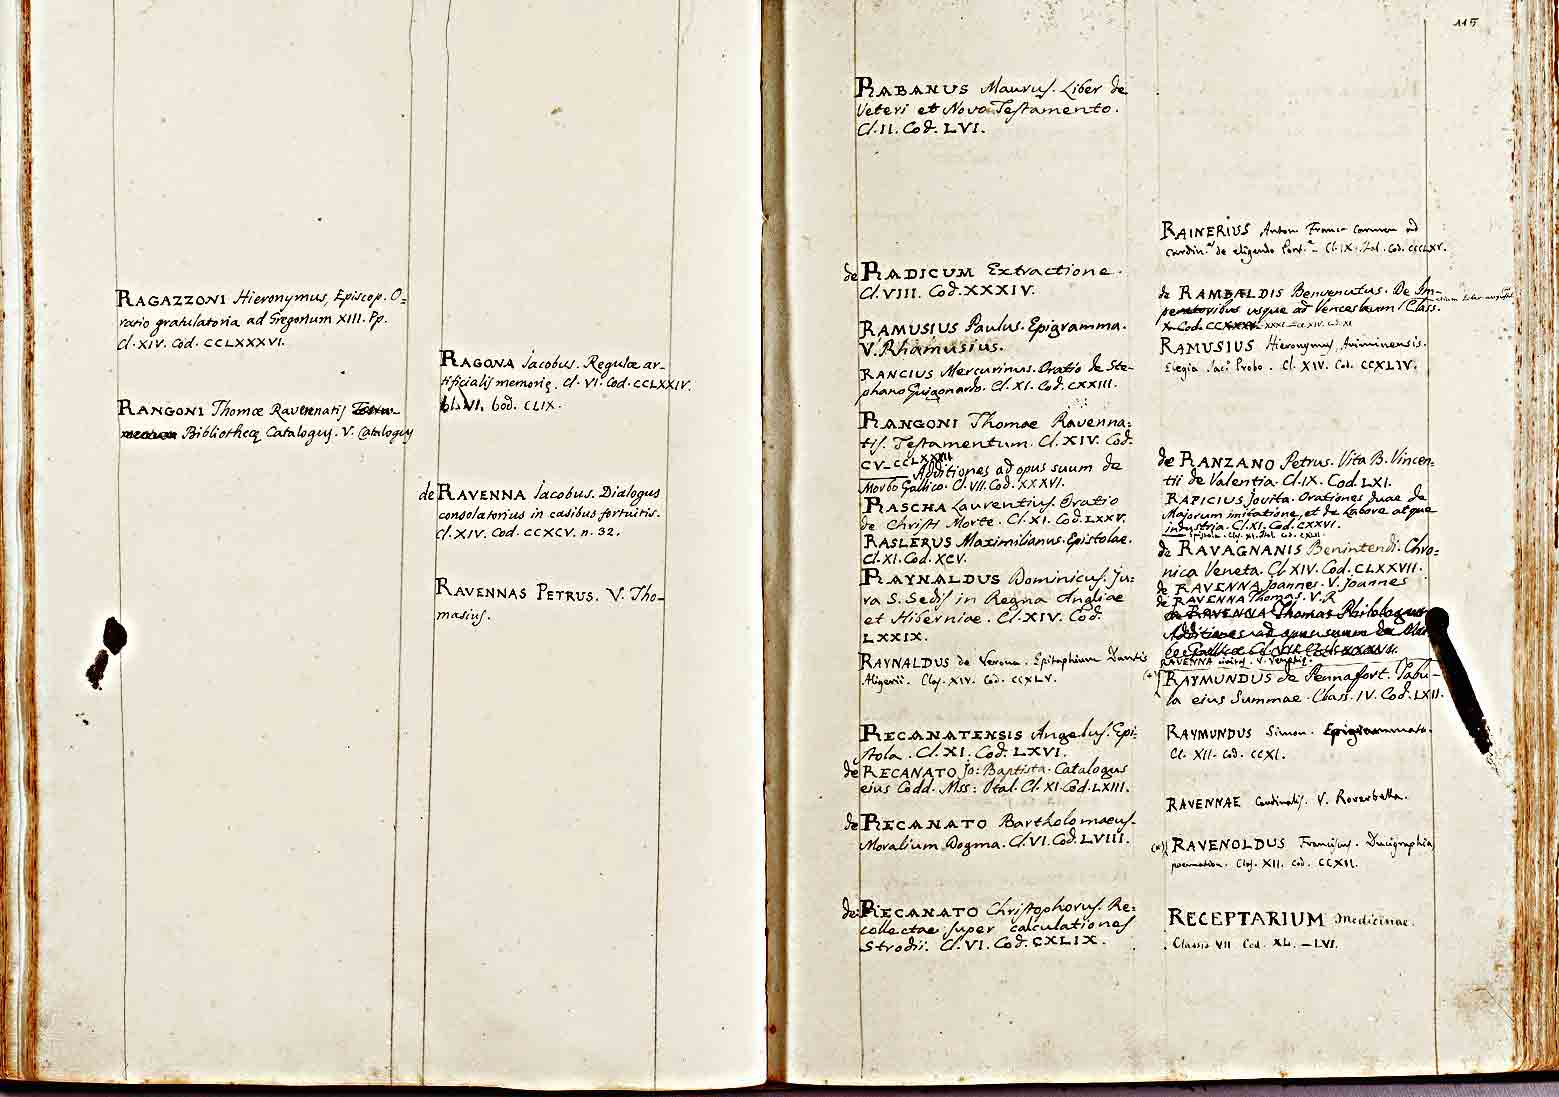 RAGAZZONI Hieronymus, Episcop. O=
ratio gratulatoria ad Gregorium XIII. Pp.
Cl. XIV. Cod. CCLXXXVI.
RANGONI Thomæ Ravennatis
Bibliothecę Catalogus. V. Catalogus
RAGONA Jacobus. Regulæ ar-
tificialis memorię. Cl. VI. Cod. CCLXXIV.
Cl. VI. Cod. CLIX.
de RAVENNA Jacobus. Dialogus
consolatorius in casibus fortuitis.
Cl. XIV. Cod. CCXCV. n. 32.
RAVENNAS PETRUS. V. Tho-
masius.
115
RABANUS Maurus. Liber de
Veteri et Novo Testamento.
Cl. II. Cod. LVI.
de RADICUM Extractione.
Cl. VIII. Cod. XXXIV.
RAMUSIUS Paulus. Epigramma.
V. Rhamusius.
RANCIUS Mercurinus. Oratio de Ste-
phano Guigonardo. Cl. XI. Cod. CXXIII.
RANGONI Thomae Ravenna=
tis. Testamentum. Cl. XIV. Cod.
CV. CCLXXXII
Additiones ad opus suum de
Morbo Gallico. Cl. VII. Cod. XXXVI.
RASCHA Laurentius. Oratio
de Christi Morte. Cl. XI. Cod. LXXV.
RASLERUS Maximilianus. Epistolae.
Cl. XI. Cod. XCV.
RAYNALDUS Dominicus. Ju=
ra S. Sedis in Regna Angliae
et Hiberniae. Cl. XIV. Cod.
LXXIX.
RAYNALDUS de Verona. Epitaphium Dantis
Aligerii. Clas. XIV. Cod. CCXLV.
RECANATENSIS Angelus. Epi=
stola. Cl. XI. Cod. LXVI.
de RECANATO Jo: Baptista. Catalogus
eius Codd. Mss: Ital. Cl. XI. Cod. LXIII.
de RECANATO Bartholomaeus.
Moralium Dogma. Cl. VI. Cod. LVIII.
de RECANATO Christophorus. Re=
collectae super calculationes
Strodii. Cl. VI. Cod. CXLIX.
RAINERIUS Anton Franc. carmen ad
Cardin. de eligendo Pont. Cl. IX. Ital. Cod. CCCLXV.
de RAMBALDIS Benvenutus. De Im-
peratoribus usque ad Venceslaum Class.
X. Cod. CCXXXV.
RAMUSIUS Hieronymus, Ariminensis.
Elegia Jani Probo. Cl. XIV. Cod. CCXLIV.
de RANZANO Petrus. Vita B. Vincen=
tii de Valentia. Cl. IX. Cod. LXI.
RAPICIUS Jovita. Orationes duae de
Majorum imitatione, et de Labore atque
industria. Cl. XI. Cod. CXXVI.
de RAVAGNANIS Benintendi. Chro=
nica Veneta. Cl. XIV. Cod. CLXXVII.
de RAVENNA Joannes. V. Joannes
de RAVENNA Thomas. V. R
de RAVENNA Thomas Philologus
Additiones ad opus suum de Mor
bo Gallico Cl. VII. Cod. XXXVI.
RAVENNA
(*) RAYMUNDUS de Pennafort. Tabu-
la eius Summae. Class. IV. Cod. LXII.
RAYMUNDUS Simon. Epigrammata.
Cl. XII. Cod. CCXI.
RAVENNAE Cardinalis. V. Roverbella.
(*) RAVENOLDUS Franciscus.
Clas. XII. Cod. CCXII.
RECEPTARIUM Medicinae.
Classis VII Cod. XL. – LVI.